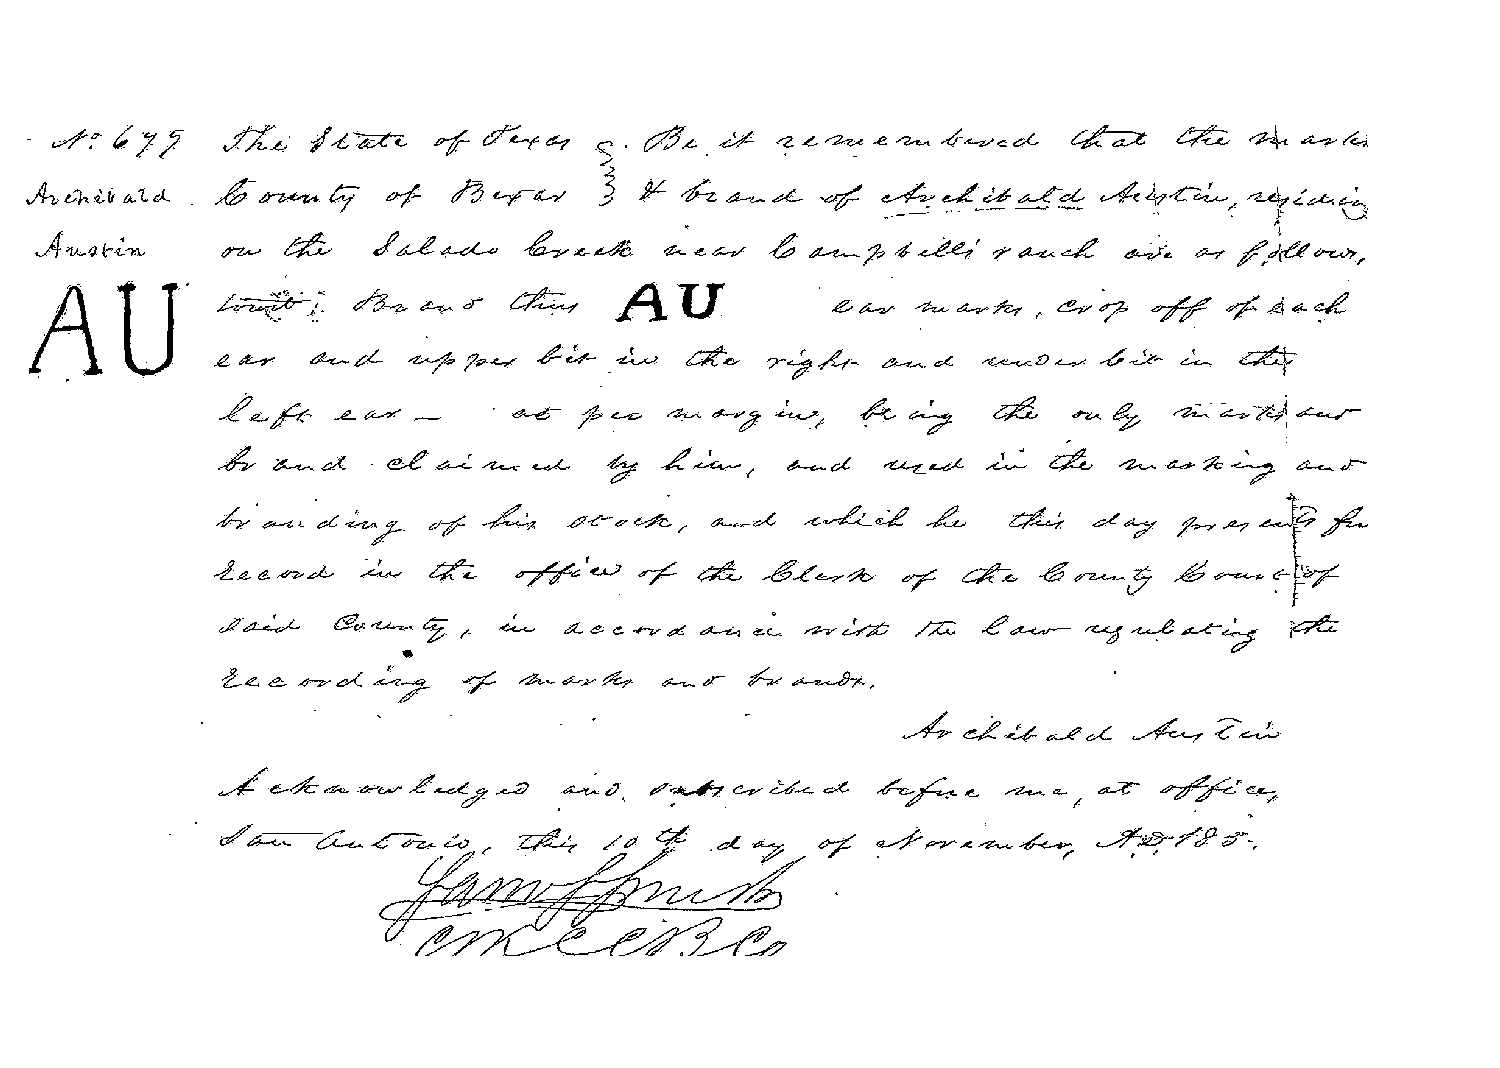 No 679 The State of Texas Be it remembered that the marks
Archibald County of Bexar & brand of Archibald Austin, residing
Austin on the Salado Creek near Campbell's ranch are as follows,
AU towit: Brand thus AU ear marks, crop off of each
ear and upper bit in the right and under bit in the
left ear — as per margin, being the only marks and
brand claimed by him, and used in the marking and
branding of his stock, and which he this day presents for
record in the office of the Clerk of the County Court of
said County, in accordance with the law regulating the
recording of marks and brands.
Archibald Austin
Acknowledged and subscribed before me, at office,
San Antonio, this 10th day of November, AD. 185-.
C C B Co